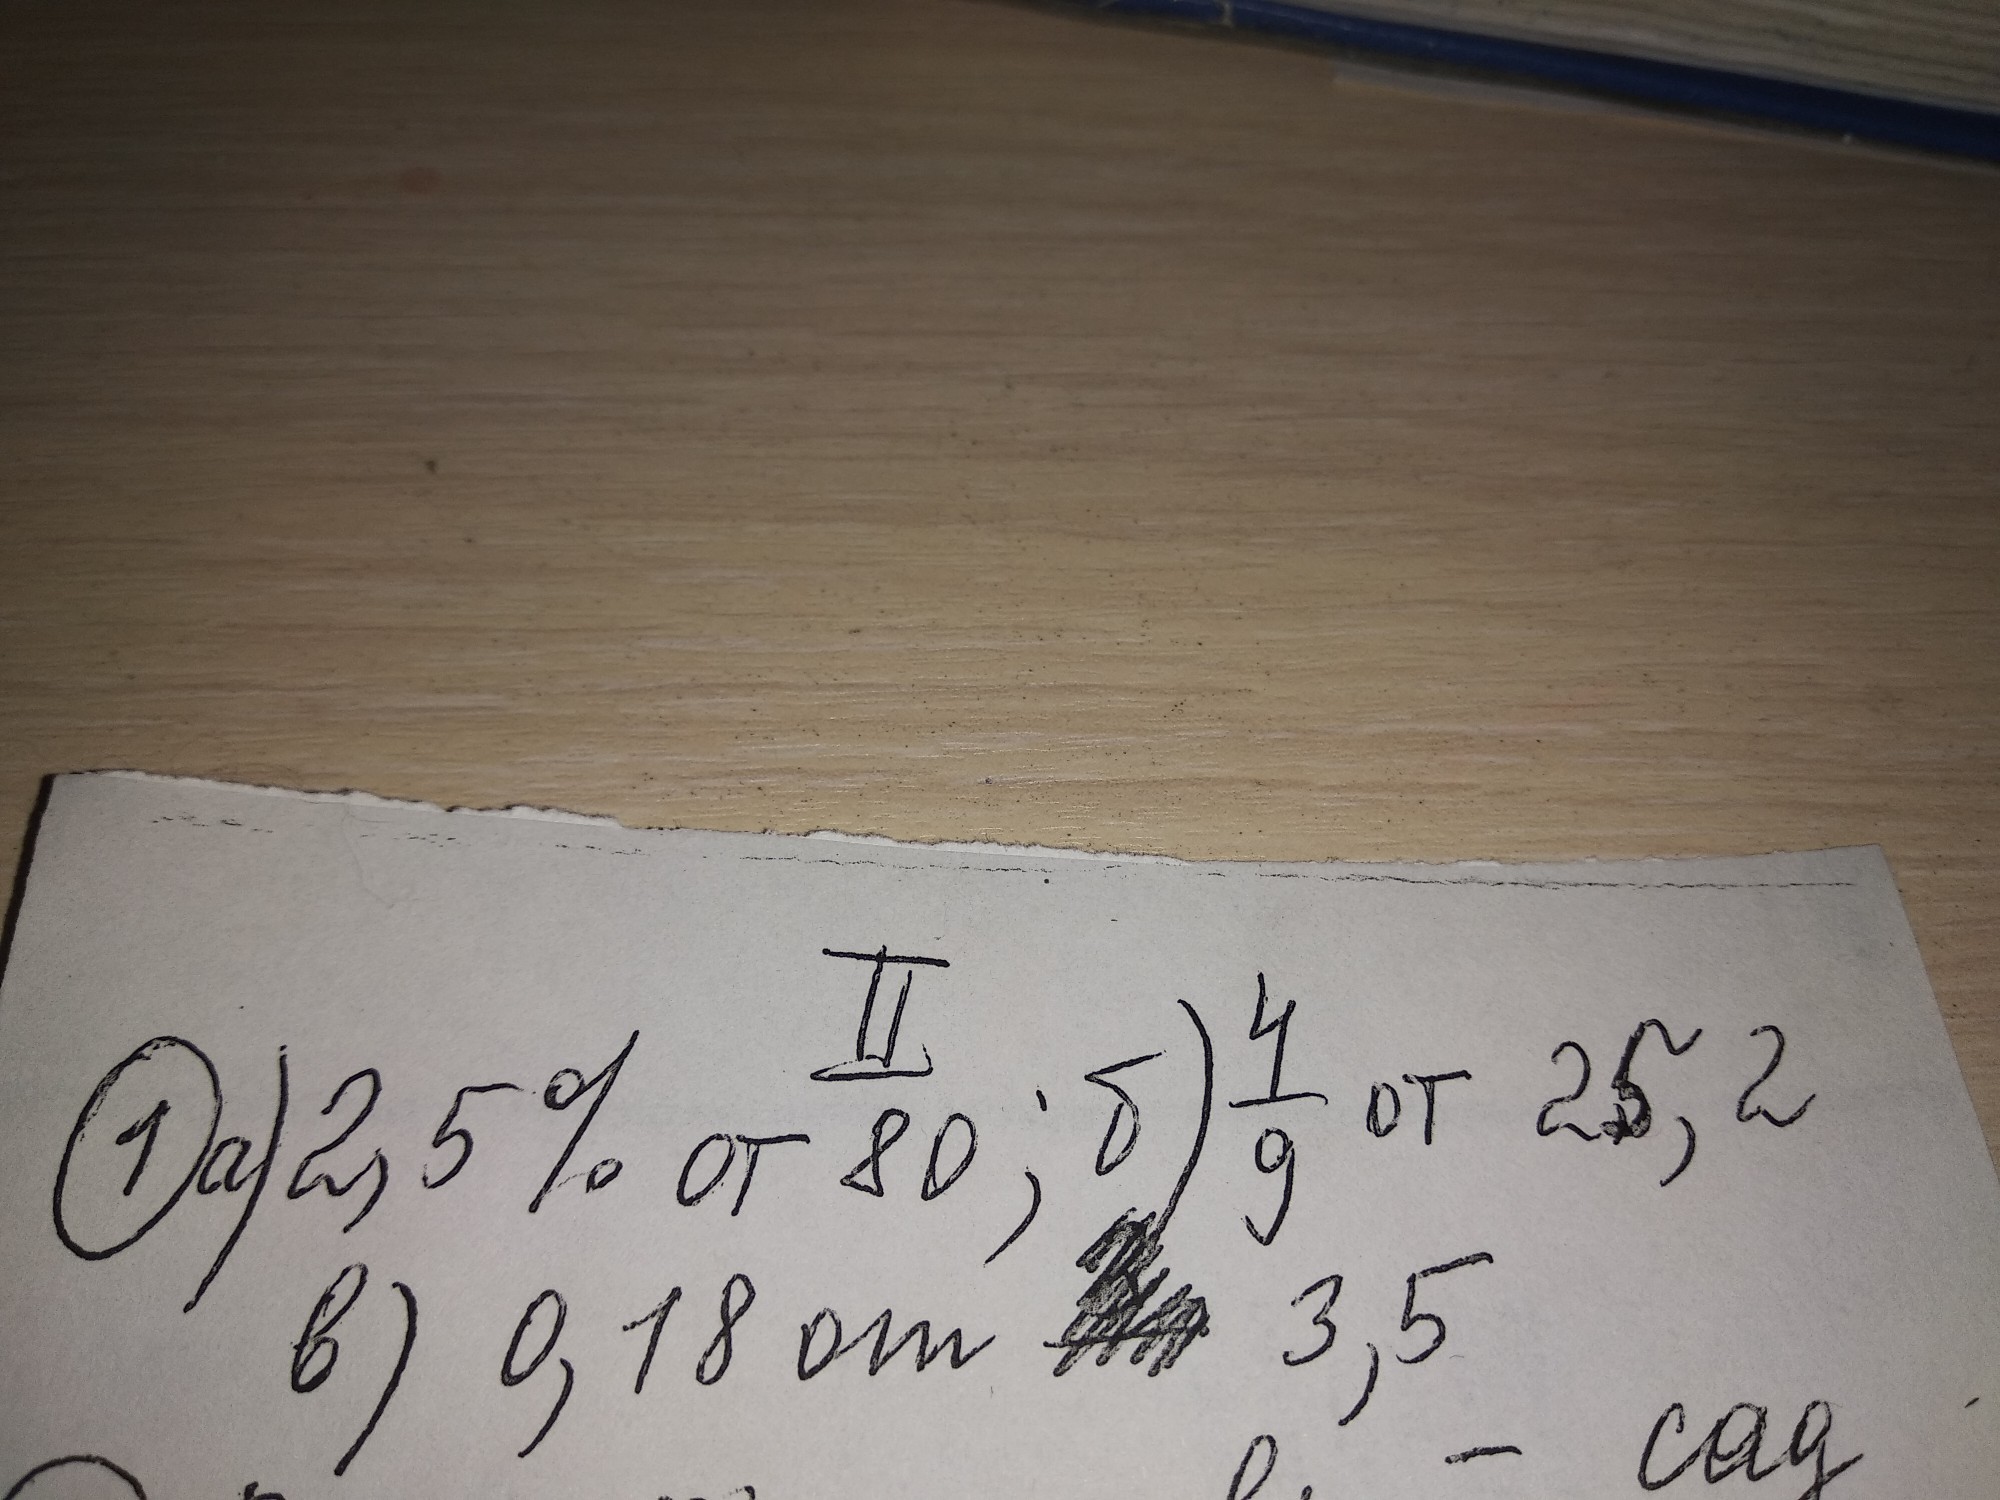 II
1 а) 2,5% от 80; б) 4/9 от 25,2
в) 0,18 от 3,5
- сад